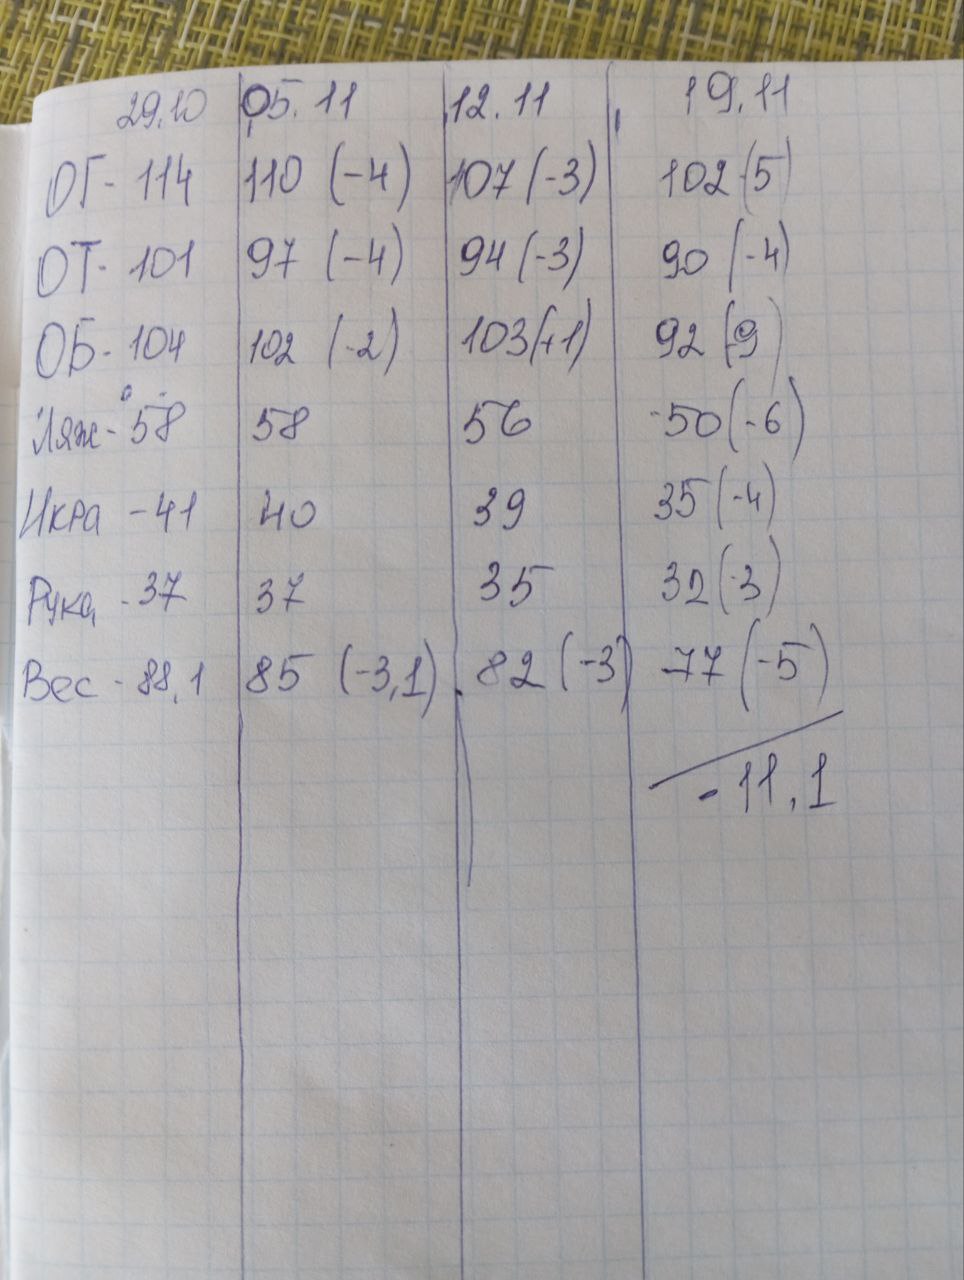 29.10 05.11 12.11 19.11
ОГ- 114 110 (-4) 107 (-3) 102 (5)
ОТ- 101 97 (-4) 94 (-3) 90 (-4)
ОБ- 104 102 (-2) 103 (+1) 92 (-9)
Ляж- 58 58 56 50 (-6)
Икра -41 40 39 35 (-4)
Рука -37 37 35 32 (-3)
Вес -88,1 85 (-3,1) 82 (-3) 77 (-5)
-11,1